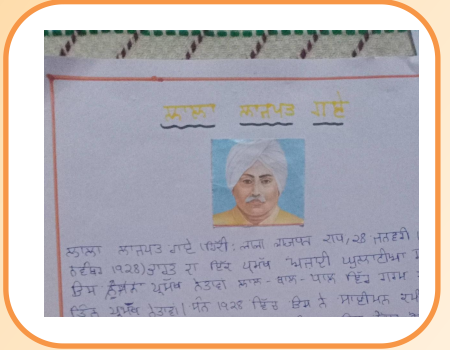 ਲਾਲਾ ਲਾਜਪਤ ਰਾਏ
ਲਾਲਾ ਲਾਜਪਤ ਰਾਏ (ਹਿੰਦੀ: लाला लाजपत राय, 28 ਜਨਵਰੀ
ਨਵੰਬਰ 1928) ਭਾਰਤ ਦਾ ਇੱਕ ਪ੍ਰਮੁੱਖ ਅਜਾਦੀ ਘੁਲਾਟੀਆ
ਇਸ ਨੂੰ ਪ੍ਰਮੁੱਖ ਨੇਤਾਵਾਂ ਲਾਲ - ਬਾਲ - ਪਾਲ ਵਿੱਚ ਗਰਮ
ਤਿੰਨ ਪ੍ਰਮੁੱਖ ਨੇਤਾਵਾਂ। ਸੰਨ 1928 ਵਿੱਚ ਇਸ ਨੇ ਸਾਈਮਨ